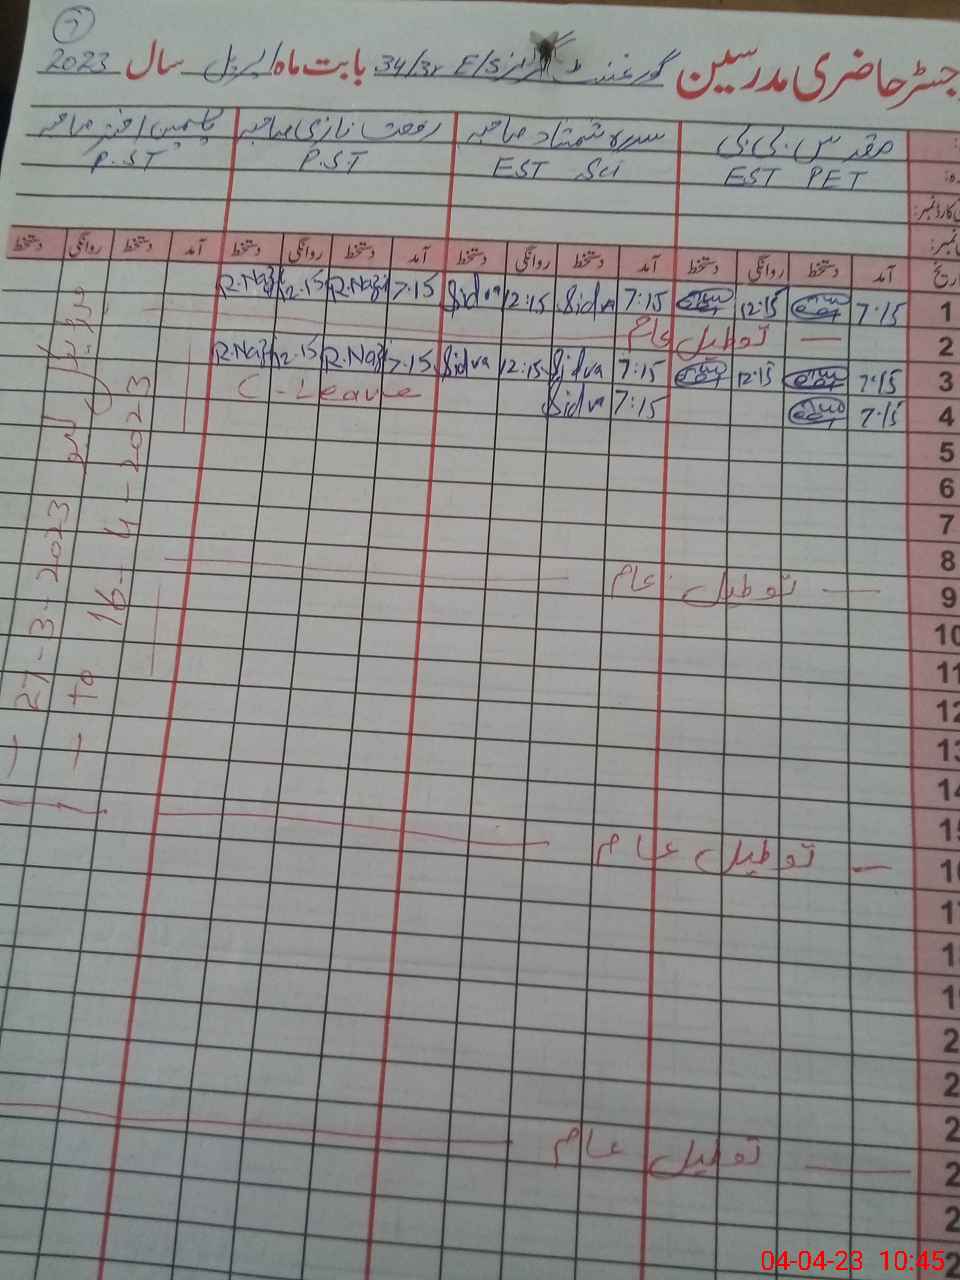 7
رجسٹر حاضری مدرسین گورنمنٹ گرلز E/S 34/3R بابت ماہ اپریل سال 2023
مقدس بی بی سدرہ شمشاد صاحبہ رفعت نازی صاحبہ یاسمین اختر صاحبہ
EST PET EST Sci P.ST P.ST
آمد دستخط روانگی دستخط آمد دستخط روانگی دستخط آمد دستخط روانگی دستخط آمد دستخط روانگی دستخط
1 7:15 12:15 7:15 Sidra 12:15 Sidra 7:15 R.Nazi 12.15 R.Nazi
2 — تعطیل عام
3 7:15 12:15 7:15 Sidra 12:15 Sidra 7.15 R.Nazi 12.15 R.Nazi
4 7:15 7:15 Sidra C-Leave
5
6
7
8
9 — تعطیل عام
10
11
12
13
14
15
16 — تعطیل عام
17
18
19
— تعطیل عام
27-3-2023
to 16-4-2023
04-04-23 10:45